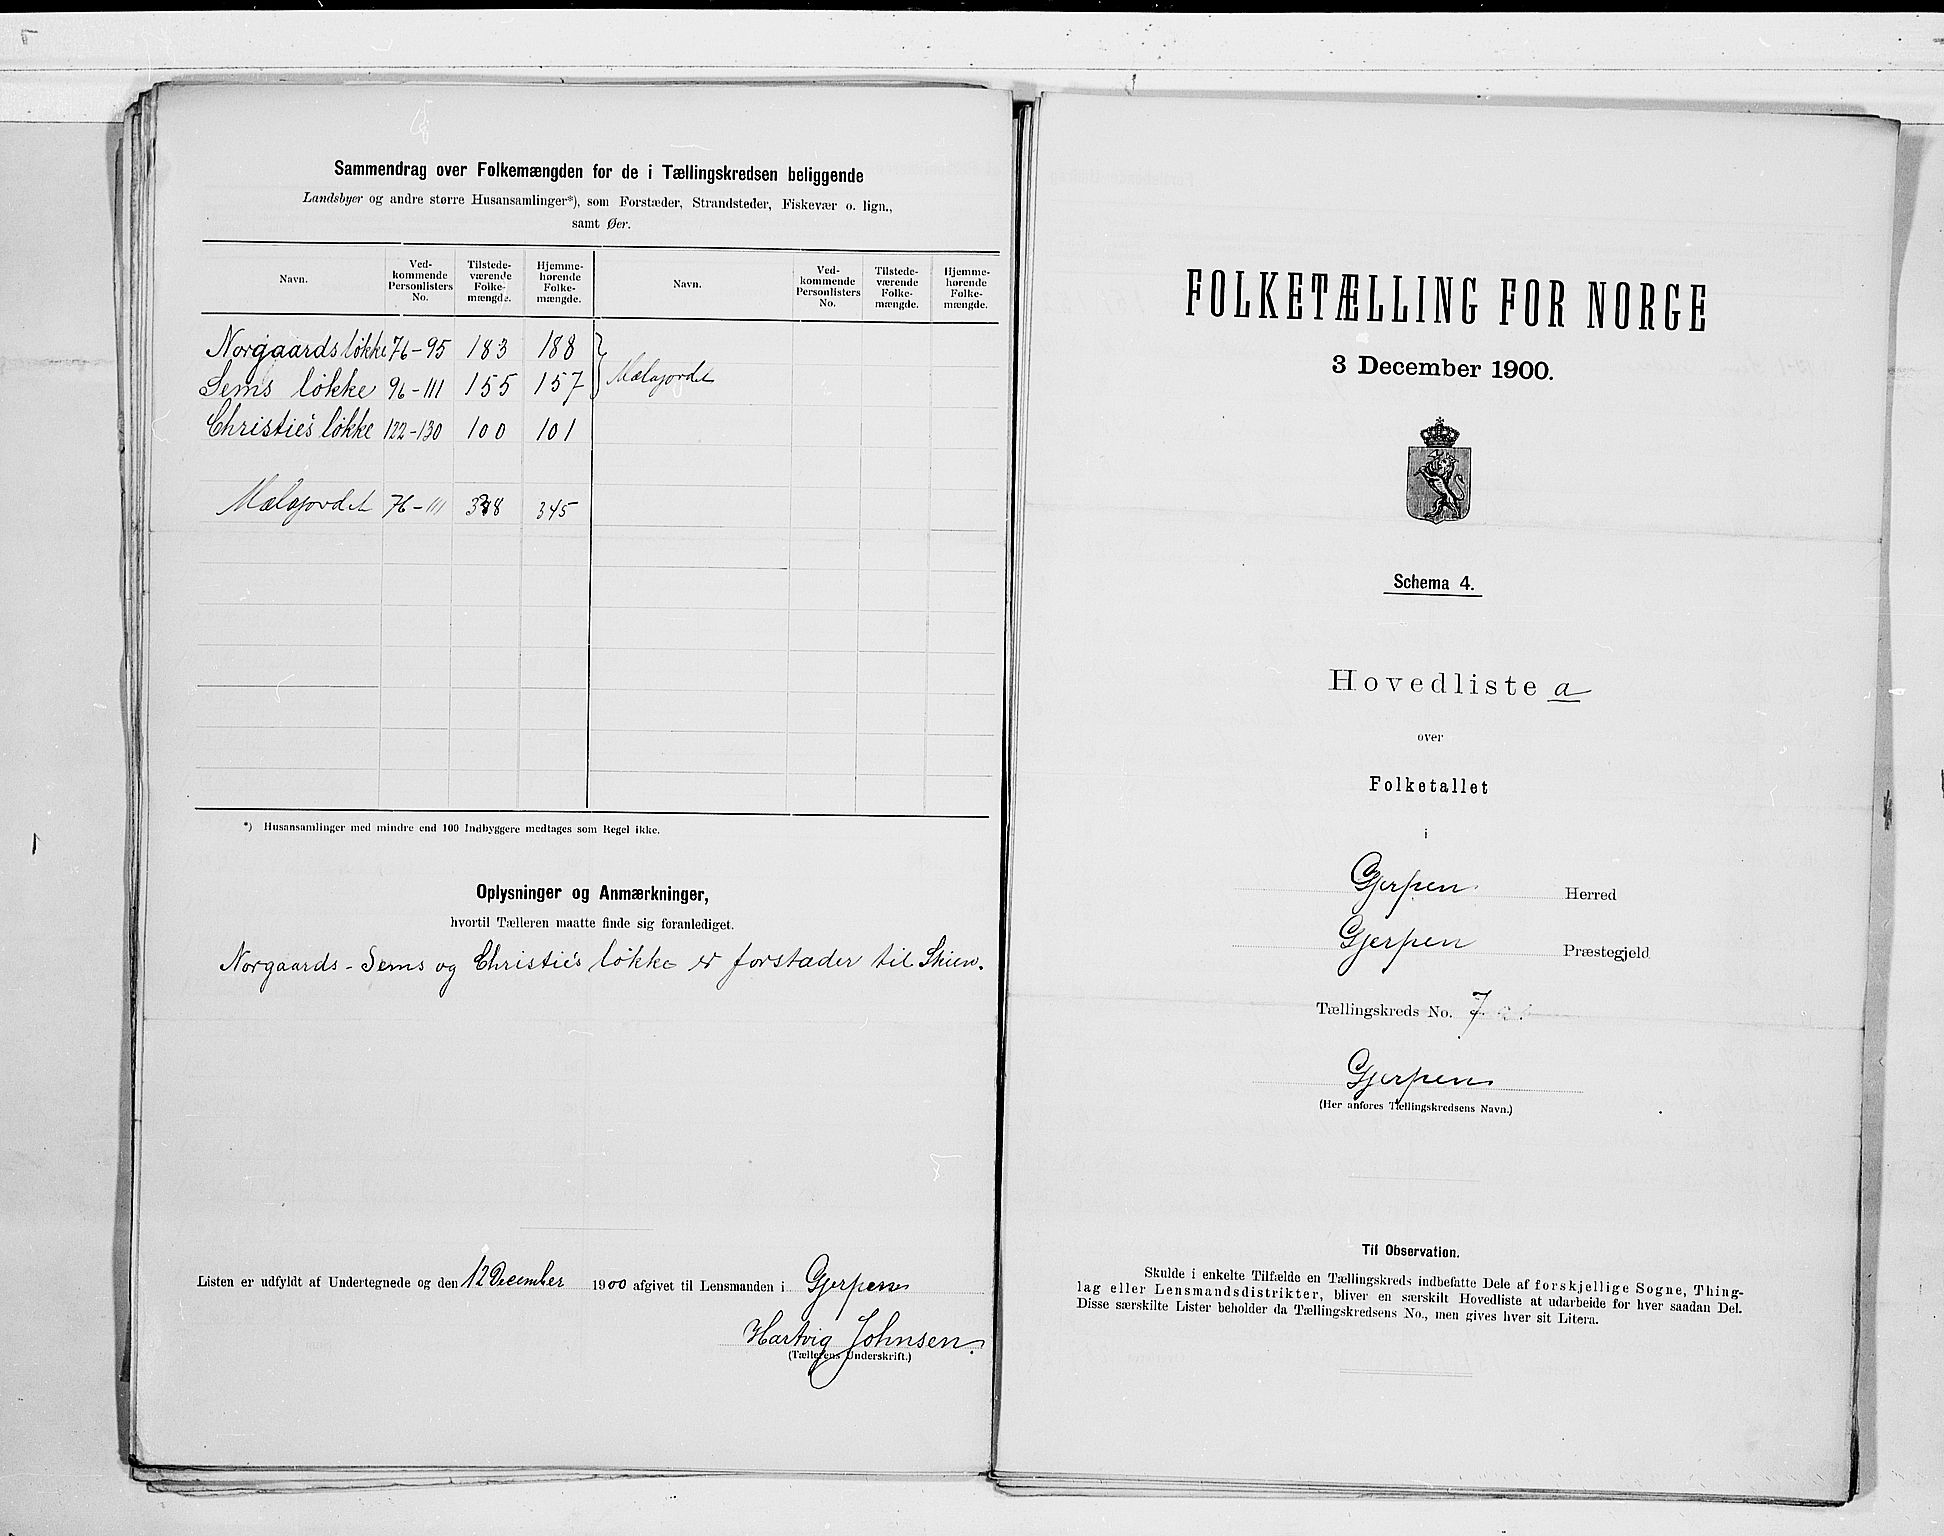 Sammendrag over Folkemængden for de i Tællingskredsen beliggende
Landsbyer og andre større Husansamlinger*), som Forstæder, Strandsteder, Fiskevær o. lign.,
samt Øer.
Navn. Ved-kommende Personlisters No. Tilstede-værende Folke-mængde. Hjemme-hørende Folke-mængde. Navn. Ved-kommende Personlisters No. Tilstede-værende Folke-mængde. Hjemme-hørende Folke-mængde.
Norgaards løkke 76-95 183 188
Sems løkke 96-111 155 157 Mælagjordet
Christie's løkke 122-130 100 101
Mælagjordet 76-111 338 345
*) Husansamlinger med mindre end 100 Indbyggere medtages som Regel ikke.
Oplysninger og Anmærkninger,
hvortil Tælleren maatte finde sig foranlediget.
Norgaards - Sems og Christie's løkke er forstæder til Skien.
Listen er udfyldt af Undertegnede og den 12 December 1900 afgivet til Lensmanden i Gjerpen
Hartvig Johnsen.
(Tællerens Underskrift.)
FOLKETÆLLING FOR NORGE
3 December 1900.
Schema 4.
Hovedliste a
over
Folketallet
i
Gjerpen Herred
Gjerpen Præstegjeld
Tællingskreds No. 7
Gjerpen
(Her anføres Tællingskredsens Navn.)
Til Observation.
Skulde i enkelte Tilfælde en Tællingskreds indbefatte Dele af forskjellige Sogne, Thing-
lag eller Lensmandsdistrikter, bliver en særskilt Hovedliste at udarbeide for hver saadan Del.
Disse særskilte Lister beholder da Tællingskredsens No., men gives hver sit Litera.